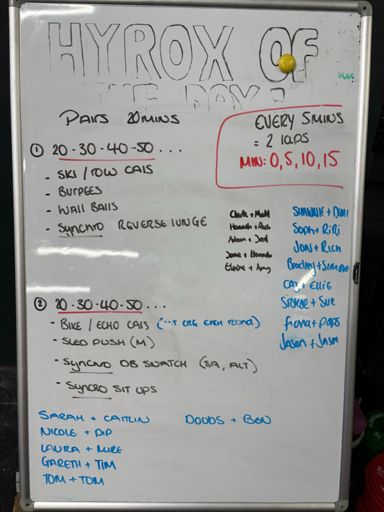 HYROX OF
THE DAY!
PAIRS 20MINS
EVERY 5MINS
= 2 LAPS
MIN: 0, 5, 10, 15
① 20-30-40-50...
- SKI / ROW CALS
- BURPEES
- WALL BALLS
- SYNCRO REVERSE LUNGE
Clark + Matt
Hannah + Rich
Adam + Jack
Jane + Hannah
Elaine + Amy
SHANNIE + DANI
Soph + RiRi
JON + RICH
Bradley + Simone
CAZ + ELLIE
+ SUE
fiona + paps
JASON + JASON
② 20-30-40-50...
- BIKE / ECHO CALS ( EACH round)
- SLED PUSH (M)
- SYNCRO DB SNATCH (SA, ALT)
- SYNCRO SIT UPS
SARAH + CAITLIN
DOUDS + BEN
NICOLE + PIP
LAURA + MIKE
GARETH + TIM
TOM + TOM